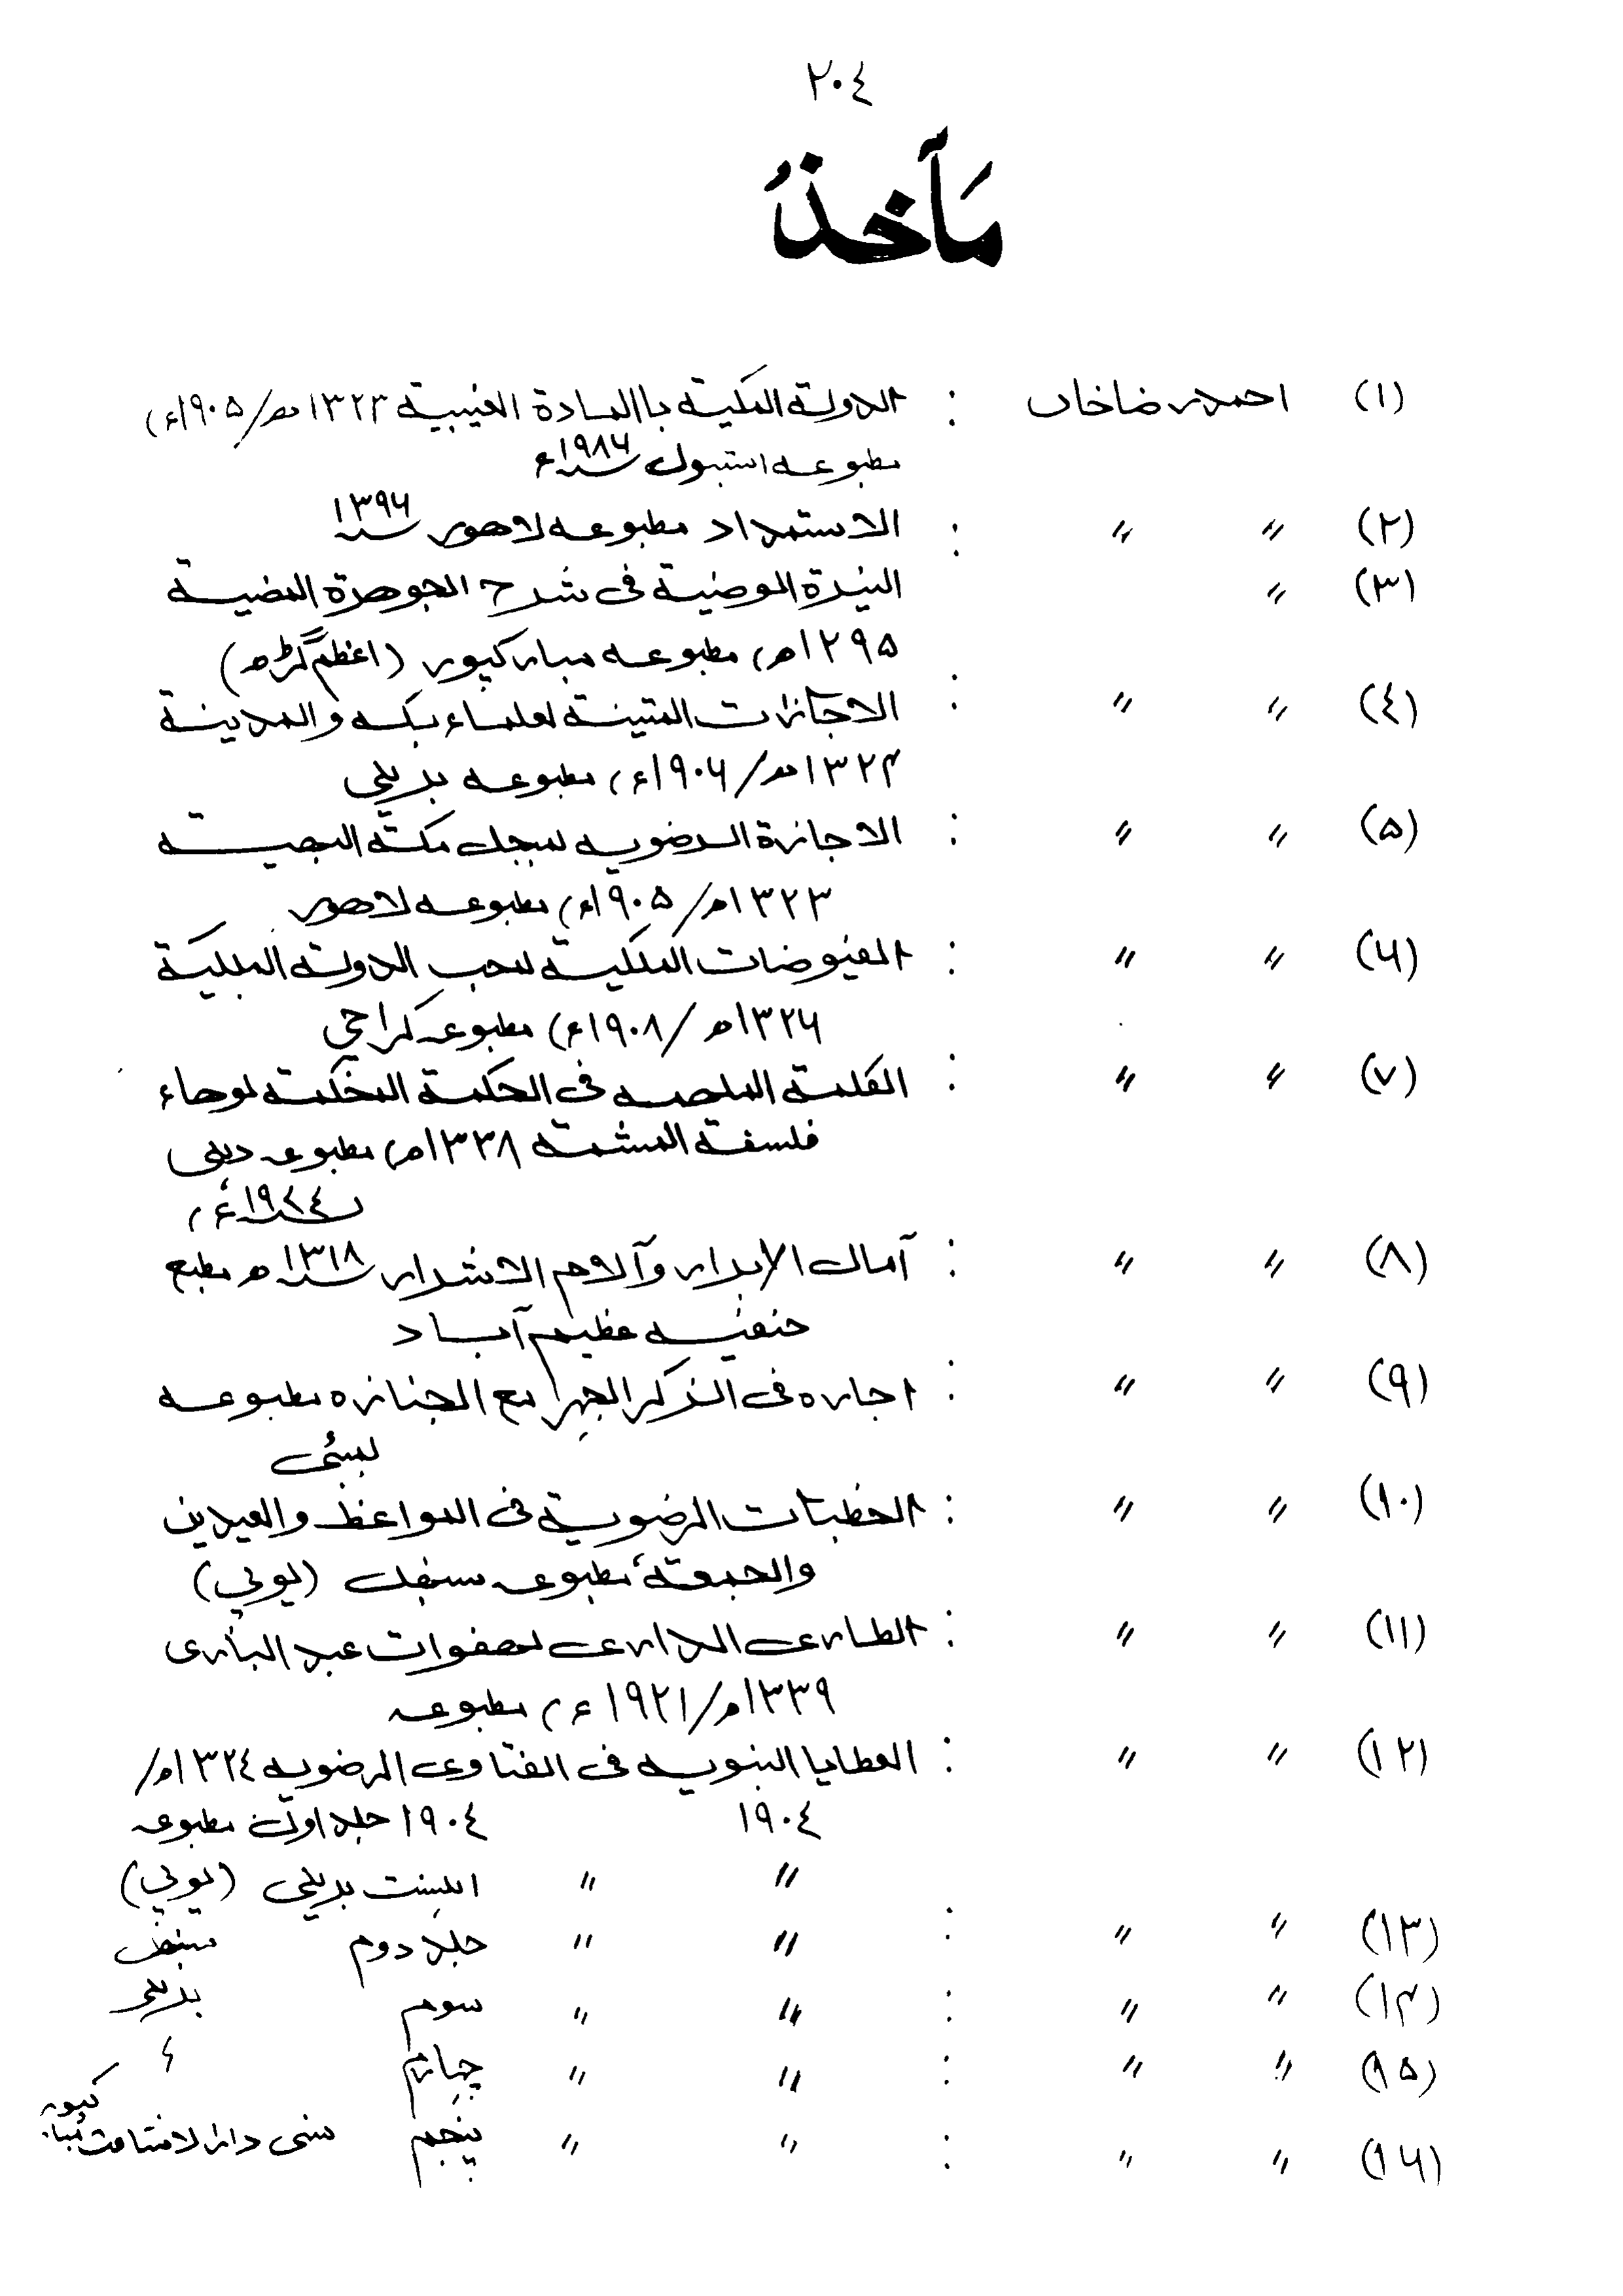 ٢٠٤
مَآخذُ
(١) احمد رضاخاں : الدولۃ المکیۃ باالمادۃ الغیبیۃ ١٣٢٣ھ/١٩٠٥ء)
مطبوعہ استنبول ١٩٨٦ء
(٢) 〃 〃 : الاستمداد مطبوعہ لاھور ١٣٩٦
(٣) 〃 النیرۃ الوضیۃ فی شرح الجوھرۃ المضیۃ
١٢٩٥ھ، مطبوعہ مبارکپور (اعظم گڑھ)
(٤) 〃 〃 : الاجازات المتینۃ لعلماء بکۃ والمدینۃ
١٣٢٤ھ/١٩٠٦ء، مطبوعہ بریلی
(٥) 〃 〃 : الاجازۃ الرضویہ لمبجل مکۃ البھیۃ
١٣٢٣ھ/١٩٠٥ء، مطبوعہ لاھور
(٦) 〃 〃 : الفیوضات الملکیۃ لمحب الدولۃ المکیۃ
١٣٢٦ھ/١٩٠٨ء، مطبوعہ کراچی
(٧) 〃 〃 : الکلمۃ الملھمہ فی الحکمۃ المحکمۃ لوھاء
فلسفۃ المشئمۃ ١٣٣٨ھ، مطبوعہ دہلی
(٨) 〃 〃 : آمال الابرار وآلام الاشرار ١٣١٨ھ مطبع
حنفیہ عظیم آباد
(٩) 〃 〃 : اجارہ فی الذکر الجہر مع الجنازہ مطبوعہ
بمبئی
(١٠) 〃 〃 : الخطبات الرضویۃ فی المواعظ والعیدین
والجمعۃ، مطبوعہ سنبھل (یوپی)
(١١) 〃 〃 : الطاری الداری لھفوات عبد الباری
١٣٣٩ھ/١٩٢١ء، مطبوعہ
(١٢) 〃 〃 : العطایا النبویہ فی الفتاوی الرضویہ ١٣٢٤ھ/
١٩٠٤ ١٩٠٤ جلد اول مطبوعہ
〃 〃 اہلسنت بریلی (یوپی)
(١٣) 〃 〃 : 〃 〃 جلد دوم سنبھل
(١٤) 〃 〃 : 〃 〃 سوم بریلی
(١٥) 〃 〃 : 〃 〃 چہارم 〃
(١٦) 〃 〃 : 〃 〃 پنجم سنی دارالاشاعت مبارکپور